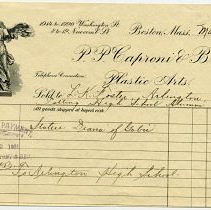 1914 to 1920 Washington St
8 to 12, Newcomb St
Boston, Mass. Ma
P. P. Caproni & B
Telephone Connection
Plastic Arts.
Sold to L. K. Foster Arlington
High School
All goods shipped at buyer's risk
Statue Diana of Gabii
PAYMENT
To Arlington High School